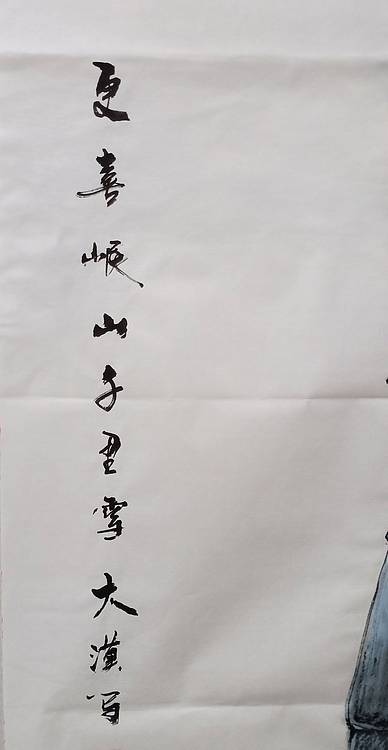 更喜岷山千里雪大漠写